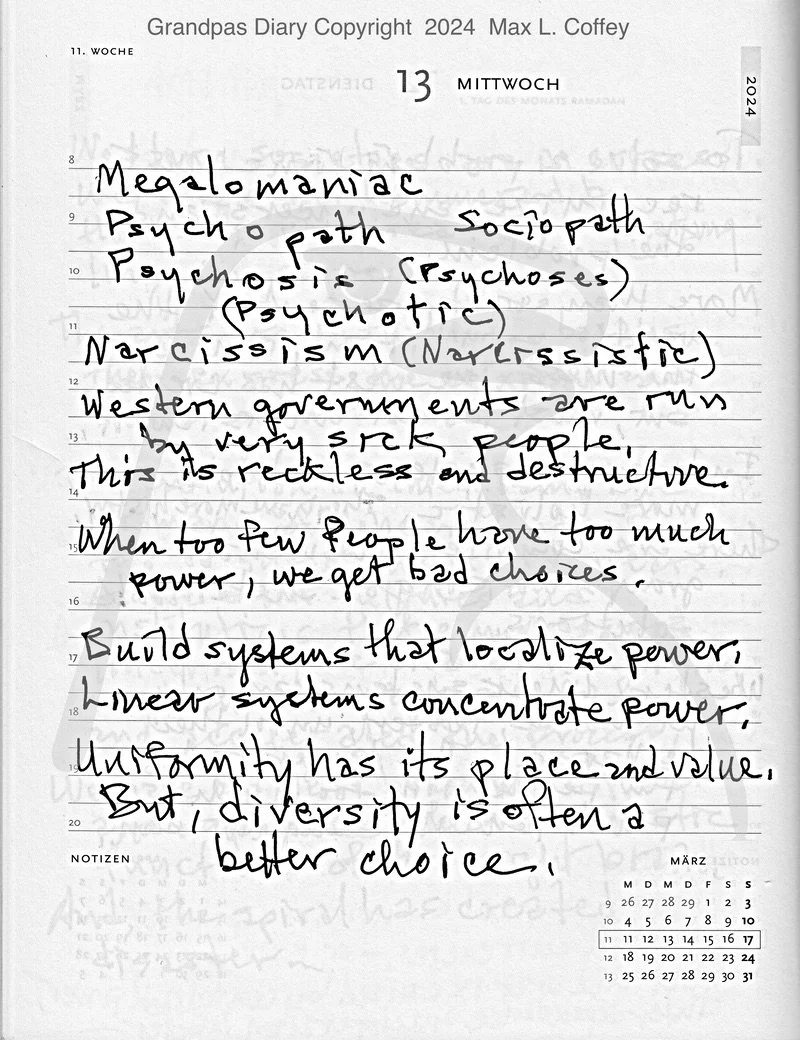 Grandpas Diary Copyright 2024 Max L. Coffey
11. WOCHE
13 MITTWOCH
2024
8
Megalomaniac
9
Psychopath Sociopath
10
Psychosis (Psychoses)
(Psychotic)
11
Narcissism (Narcissistic)
12
Western governments are run
13
by very sick people.
This is reckless and destructive.
14
When too few People have too much
15
power, we get bad choices.
16
Build systems that localize power.
17
Linear systems concentrate power.
18
Uniformity has its place and value.
19
But, diversity is often a
20
better choice.
NOTIZEN
MÄRZ
M D M D F S S
9 26 27 28 29 1 2 3
10 4 5 6 7 8 9 10
11 11 12 13 14 15 16 17
12 18 19 20 21 22 23 24
13 25 26 27 28 29 30 31